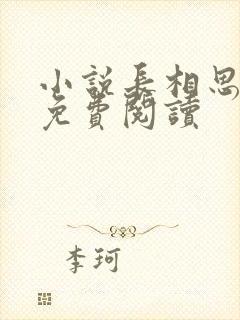 小说长相思
免費閱讀
李珂